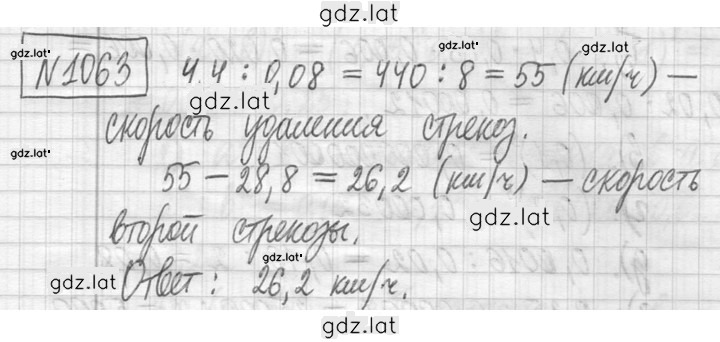 gdz.lat
gdz.lat gdz.lat gdz.lat
N 1063 4.4 : 0,08 = 440 : 8 = 55 (км/ч) —
gdz.lat
скорость удаления стрекоз.
gdz.lat
55 – 28,8 = 26,2 (км/ч) — скорость
gdz.lat
второй стрекозы.
gdz.lat
gdz.lat Ответ: 26,2 км/ч. gdz.lat
gdz.lat